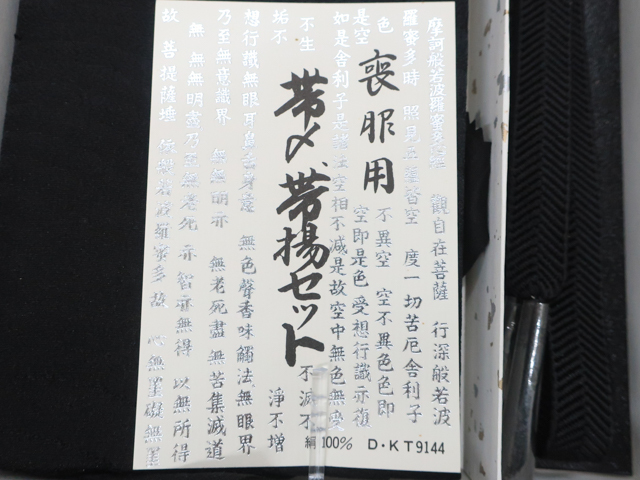 喪服用
帯〆、帯揚セット
摩訶般若波羅蜜多心経 觀自在菩薩 行深般若波
羅蜜多時 照見五蘊皆空 度一切苦厄舎利子
色 不異空 空不異色色即
是空 空即是色 受想行識亦復
如是舎利子是諸法空相不滅是故空中無色無受
不生 不滅不
垢不 淨不增
想行識無眼耳鼻舌身意 無色聲香味觸法無眼界
乃至無意識界 無無明亦 無老死盡 無苦集滅道
無 無無明盡乃至無老死 亦 智亦無得 以無所得
故 菩提薩埵 依般若波羅蜜多 故 心無罣礙無罣
絹100% D・KT9144